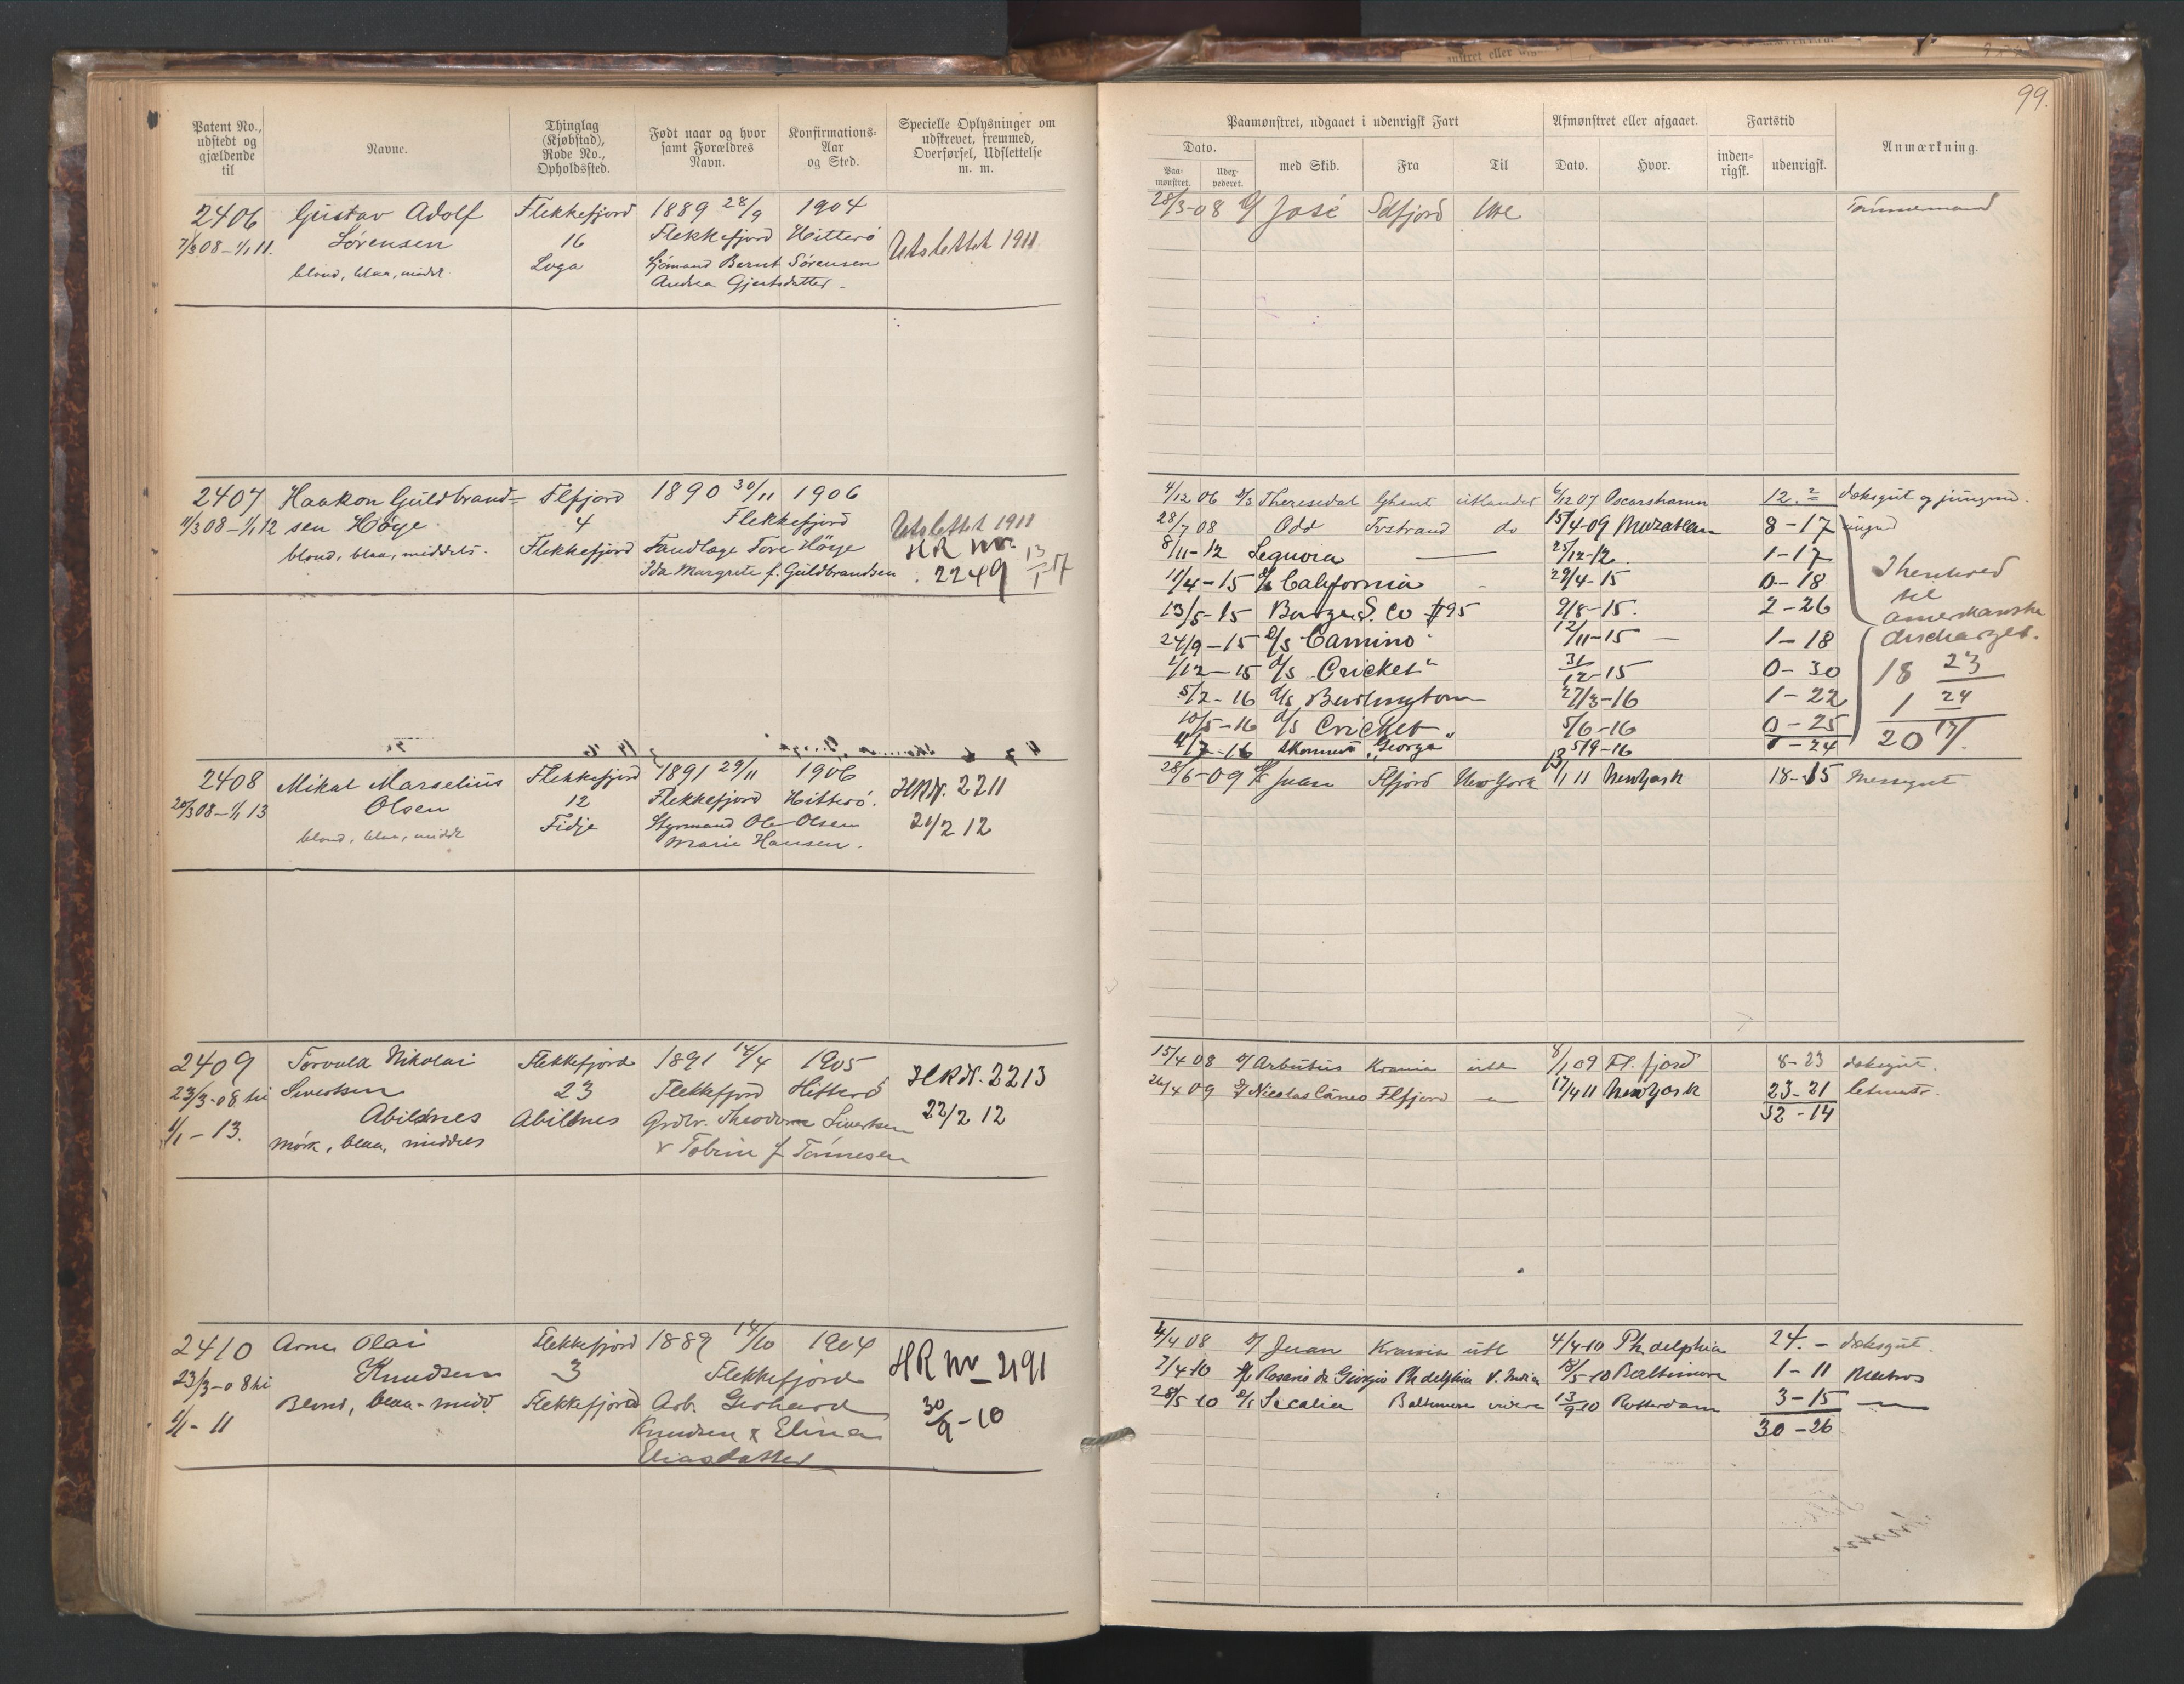 99.
Patent No., udstedt og gjældende til
Navne.
Thinglag (Kjøbstad), Rode No., Opholdssted.
Født naar og hvor samt Forældres Navn.
Konfirmations-Aar og Sted.
Specielle Oplysninger om udskrevet, fremmed, Overførsel, Udslettelse m. m.
Paamønstret, udgaaet i udenrigsk Fart
Afmønstret eller afgaaet.
Fartstid
Anmærkning.
Dato.
Paa-mønstret.
Udex-pederet.
med Skib.
Fra
Til
Dato.
Hvor.
inden-rigsk.
udenrigsk.
2406 Gustav Adolf Flekkefjord 1889 28/9 1904
7/3 08 – 1/1 11. Sørensen 16 Flekkefjord Hitterø Utslettet 1911
blond, blaa, midd. Loga Sjömand Bernt Sørensen
Andrea Gjertsdatter
28/3-08 José Selfjord Ute Tømmermand
2407 Haakon Guldbrand- Flfjord 1890 30/11 1906
11/3 08 – 1/1 12 sen Höye. 4 Flekkefjord Utslettet 1911
blond, blaa, middels. Flekkefjord Tandlæge Tore Höye HR nr 13/1 17
Ida Margrete f. Guldbrandsen 2249
4/12 06 Theresdal Ghent utlandet 6/12 07 Oscarshamn 12. 2 dæksgut og jungmd.
28/7 08 Odd Tvstrand do 15/4-09 8-17 jungmd
8/11-12 Sequoia — 25/12-12. 1-17
11/4-15 California 29/4-15 0-18 I henhold
13/5-15 Barge S. Co #95 9/8-15. 2-26 til amerikanske
24/9-15 d/s Camino 12/11-15 — 1-18 discharges.
1/12-15 d/s Cricket 31/12-15 0-30 18 23
5/2-16 d/s Burlington 27/3-16 1-22 1 24
10/5-16 d/s Cricket 5/6-16 0-25 20 17
11/7-16 skonnert Georga 5/9-16 1-24
2408 Mikal Marselius Flekkefjord 1891 29/11 1906 HRN. 2211
20/3 08 – 1/1 13 Olsen 12 Flekkefjord Hitterö. 21/2 12
blond, blaa, midd Fidje Styrmand Ole Olsen
Marie Hansen.
28/6-09 Juan Flfjord New York 13/1 11 New York 18-15 Messegut
2409 Torvald Nikolai Flekkefjord 1891 14/4 1905 HRN. 2213
23/3-08 til Sivertsen 23 Flekkefjord Hitterö
1/1-13. Abildnes Abildnes Grdbr. Theodor Sivertsen 22/2 12
Mörk, blaa, middels & Tobine f. Tönnesen
15/4 08 Arbutus Krania utl 8/1 09 Fl. fjord 8-23 dæksgut.
26/4 09 Nicolas Cuneo Flfjord — 17/4 11 New York 23-21 letmatr.
32-14
2410 Arne Olai Flekkefjord 1889 14/10 1904 HR Nr 2191
23/3-08 til Knudsen 3 Flekkefjord
1/1-11 Blond, blaa-midd. Flekkefjord Arb. Gerhard 30/9-10
Knudsen & Elina
Eliasdatter
4/4 08 Juan Krania utl 4/4-10 Phdelphia 24.- dæksgut.
7/4-10 Rosario di Giorgio Phdelphia V. India 18/5-10 Baltimore 1-11 Matros
28/5 10 d/s Sicalia Baltimore videre 13/9 10 Rotterdam 3-15 —
30-26